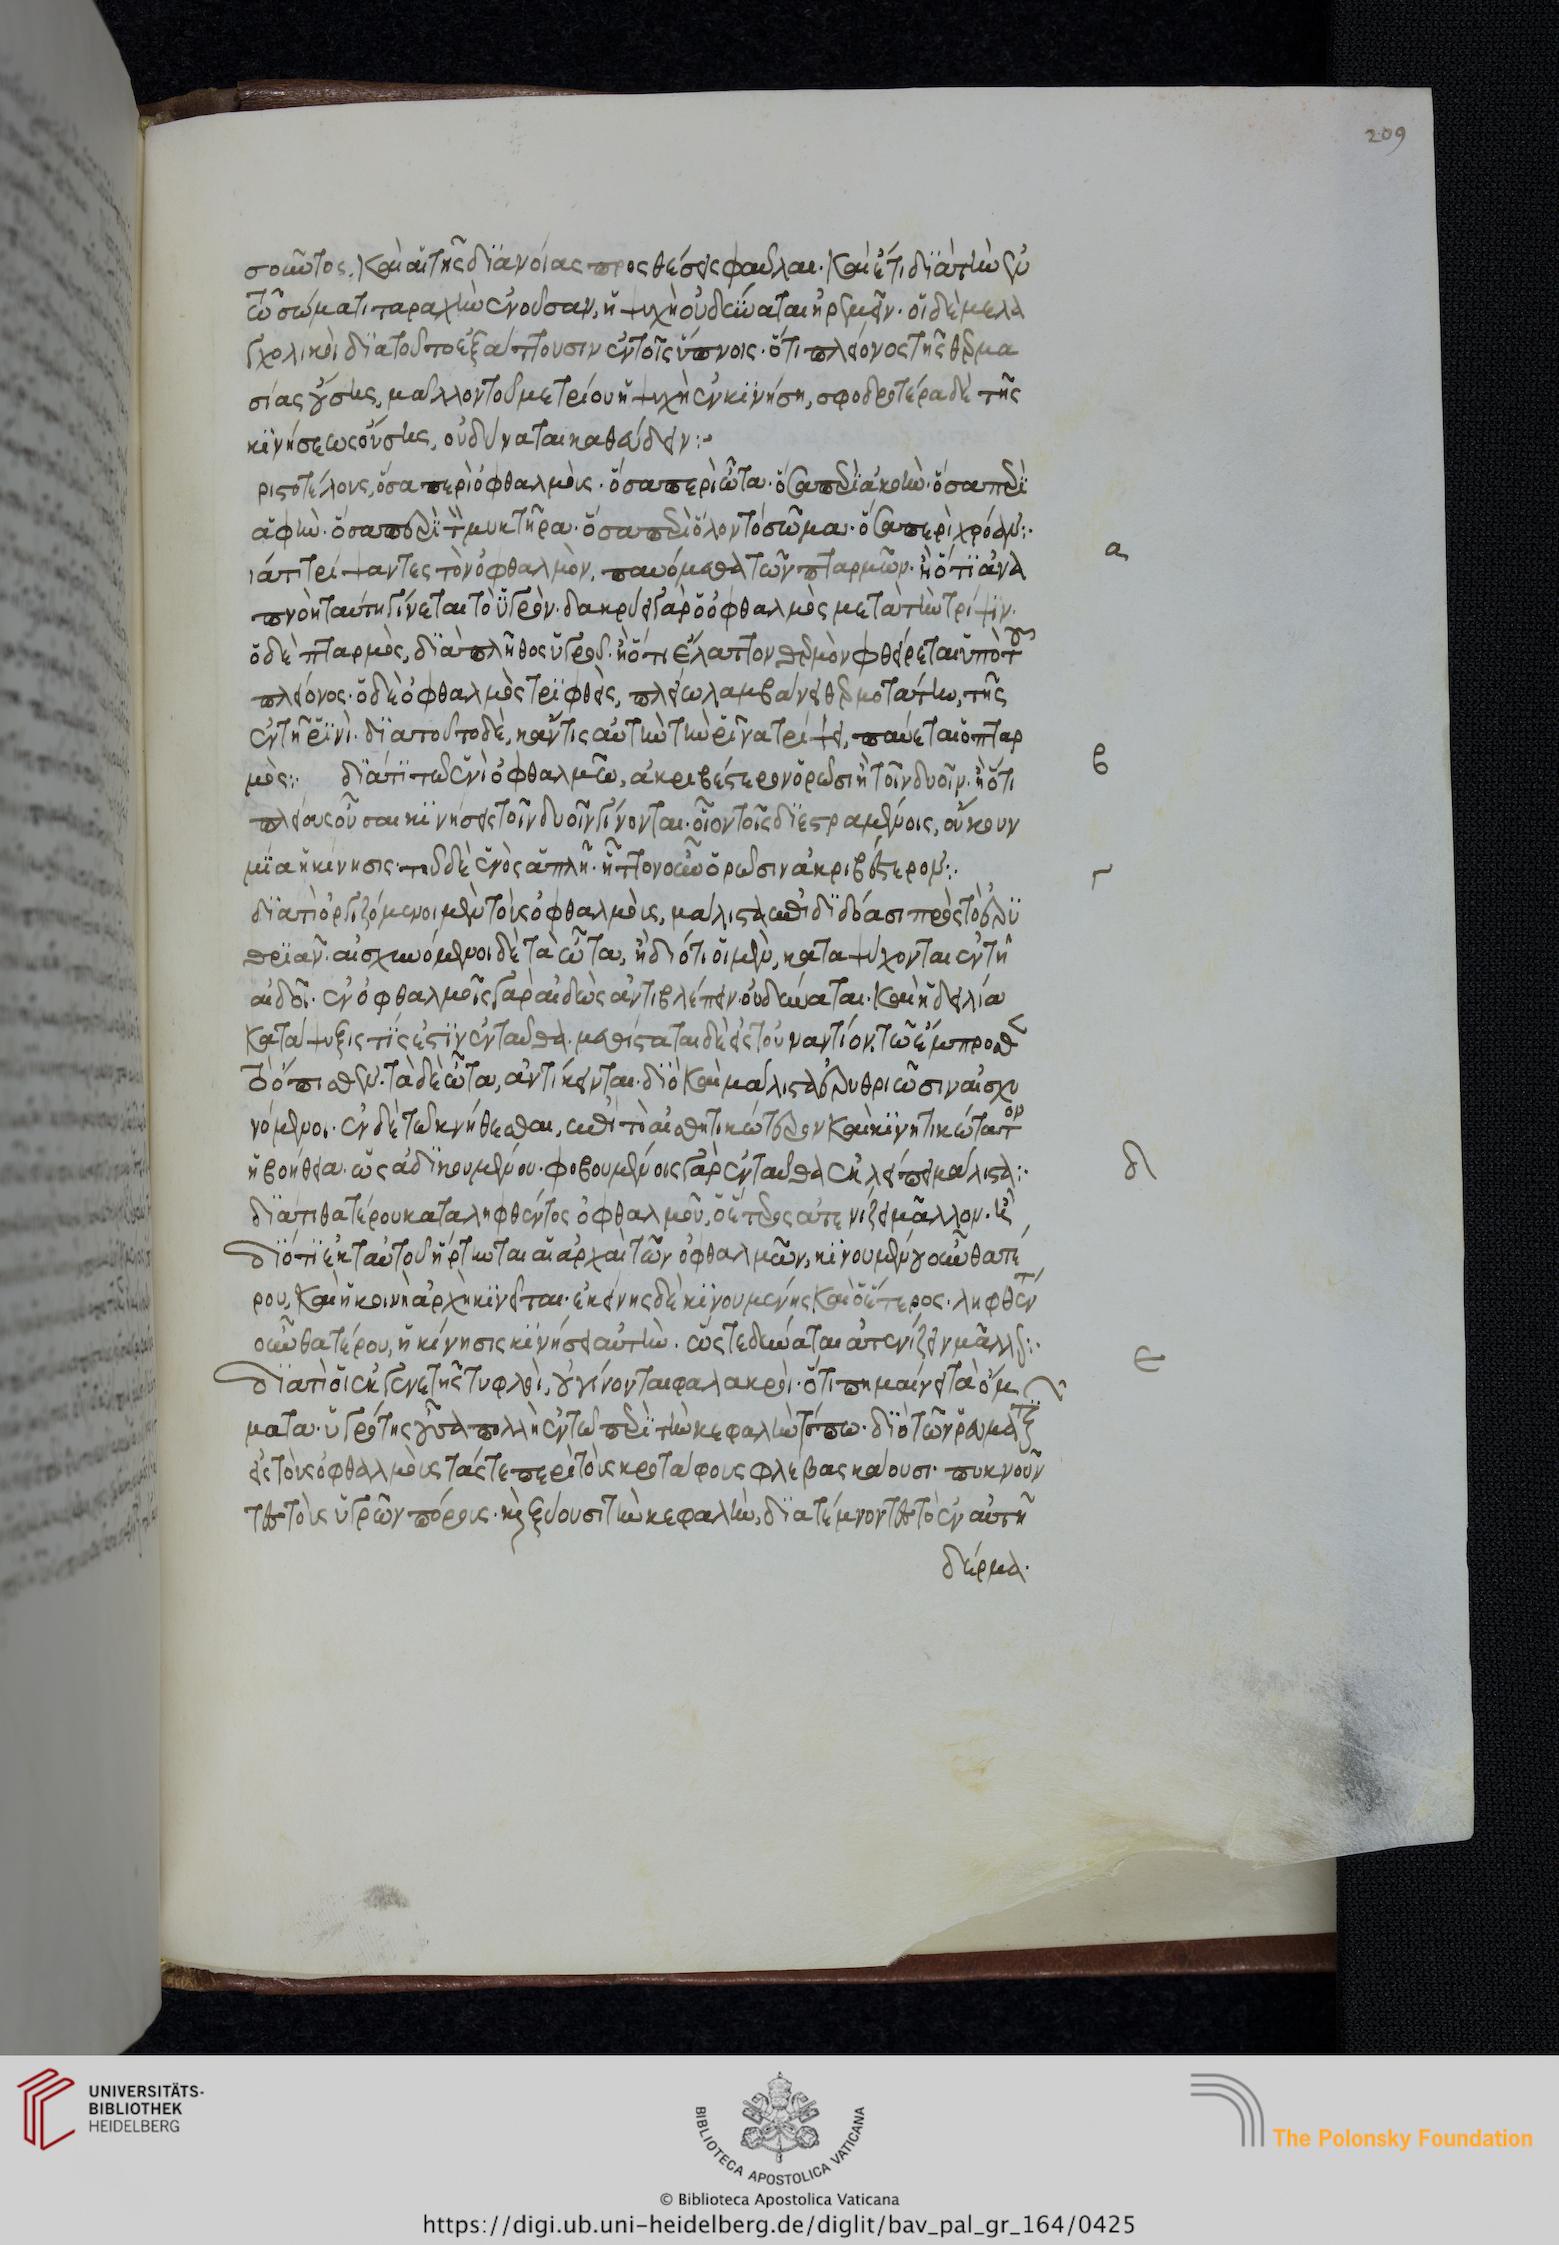 209
σοῦντος. καὶ αἱ τῆς διανοίας προςθέσεις φαῦλαι. καὶ ἔτι διὰ τὴν ἐν
τῶ σώματι ταραχὴν ἐνοῦσαν, ἡ ψυχὴ οὐ δύναται ἠρεμεῖν. οἱ δὲ μελα
γχολικοὶ διὰ τοῦτο ἐξάπτουσιν ἐν τοῖς ὕπνοις. ὅτι πλείονος τῆς θερμα
σίας οὔσης, μᾶλλον τοῦ μετρίου ἡ ψυχὴ ἐν κινήσει, σφοδροτέρα δὲ τῆς
κινήσεως οὔσης, οὐ δύναται καθεύδειν:
ριστοτέλους, ὅσα περὶ ὀφθαλμοὺς. ὅσα περὶ ὦτα. ὅσα περὶ ἀκοὴν. ὅσα περὶ
ἁφὴν. ὅσα περὶ τὸν μυκτῆρα. ὅσα περὶ ὅλον τὸ σῶμα. ὅσα περὶ χρόαν:
α
ιάτι τρίψαντες τὸν ὀφθαλμὸν, παυόμεθα τῶν πταρμῶν. ἢ ὅτι ἀνα
πνοὴ ταύτη γίνεται τὸ ὑγρὸν. δακρύει γὰρ ὁ ὀφθαλμὸς μετὰ τὴν τρίψιν.
ὁ δὲ πταρμὸς, διὰ πλῆθος ὑγροῦ. ἢ ὅτι ἔλαττον θερμὸν φθείρεται ὑπὸ τοῦ
πλείονος. ὁ δὲ ὀφθαλμὸς τριφθεὶς, πλείω λαμβάνει θερμότητα, τῆς
ἐν τῆ ῥινὶ. διὰ τοῦτο δὲ, κἄν τις αὐτὴν τὴν ῥῖνα τρίψει, παύεται ὁ πταρ
β
μὸς: διάτι τῶ ἑνὶ ὀφθαλμῶ, ἀκριβέστερον ὁρῶσι ἢ τοῖν δυοῖν. ἢ ὅτι
πλείους οὖσαι κινήσεις τοῖν δυοῖν γίνονται. οἷον τοῖς διεστραμμένοις, οὔκουν
μία ἡ κίνησις. τῶ δὲ ἑνὸς ἁπλῆ. ἧττον οὖν ὁρῶσιν ἀκριβέστερον:
γ
διατί ὀργιζόμενοι μὲν τοὺς ὀφθαλμοὺς, μάλιστα ἐπιδιδόασι πρὸς τὸ ἐρυ
θριᾶν. αἰσχυνόμενοι δὲ τὰ ὦτα, ἢ διότι οἱ μὲν, καταψύχονται ἐν τῆ
αἰδοῖ. ἐν ὀφθαλμοῖς γὰρ αἰδὼς ἀντιβλέπειν οὐ δύναται. καὶ ἡ δειλία
κατάψυξις τίς ἐστὶν ἐνταῦθα. μεθίσταται δὲ εἰς τοὐναντίον, τῶ ἔμπροσθεν
τὸ ὄπισθεν. τὰ δὲ ὦτα, ἀντίκειται. διὸ καὶ μάλιστα ἐρυθριῶσιν αἰσχυ
νόμενοι. ἐν δὲ τῶ κνήθεσθαι, ἐπὶ τὸ αἰσθητικώτερον καὶ κινητικώτατον
ἡ βοήθεια. ὡς ἀδικουμένου. φοβουμένοις γὰρ ἐνταῦθα ἐκλείπει μάλιστα:
δ
διάτι θατέρου καταληφθέντος ὀφθαλμοῦ, ὁ ἕτερος ἀτενίζει μᾶλλον. ἢ
διότι ἐκ ταὐτοῦ ἤρτηνται αἱ ἀρχαὶ τῶν ὀφθαλμῶν, κινουμένου οὖν θατέ
ρου, καὶ ἡ κοινὴ ἀρχὴ κινεῖται. ἐκείνης δὲ κινουμένης καὶ ὁ ἕτερος. ληφθέντος
οὖν θατέρου, ἡ κίνησις κινήσει αὐτὴν. ὥςτε δύναται ἀτενίζειν μᾶλλον:
ε
διατὶ οἱ ἐκ γενετῆς τυφλοὶ, οὐ γίνονται φαλακροὶ. ὅτι πημαίνει τὰ ὄμ
ματα. ὑγρότης οὖσα πολλὴ ἐν τῶ περὶ τὴν κεφαλὴν τόπω. διὸ τῶν ῥευματιζ
εἰς τοὺς ὀφθαλμοὺς τάς τε περὶ τοὺς κροτάφους φλέβας καίουσι. πυκνοῦν
τες τοὺς ὑγρῶν πόρους. καὶ ξύουσι τὴν κεφαλὴν, διατέμνοντες τὸ ἐν αὐτῆ
δέρμα.
UNIVERSITÄTS-
BIBLIOTHEK
HEIDELBERG
BIBLIOTECA APOSTOLICA VATICANA
© Biblioteca Apostolica Vaticana
The Polonsky Foundation
https://digi.ub.uni-heidelberg.de/diglit/bav_pal_gr_164/0425